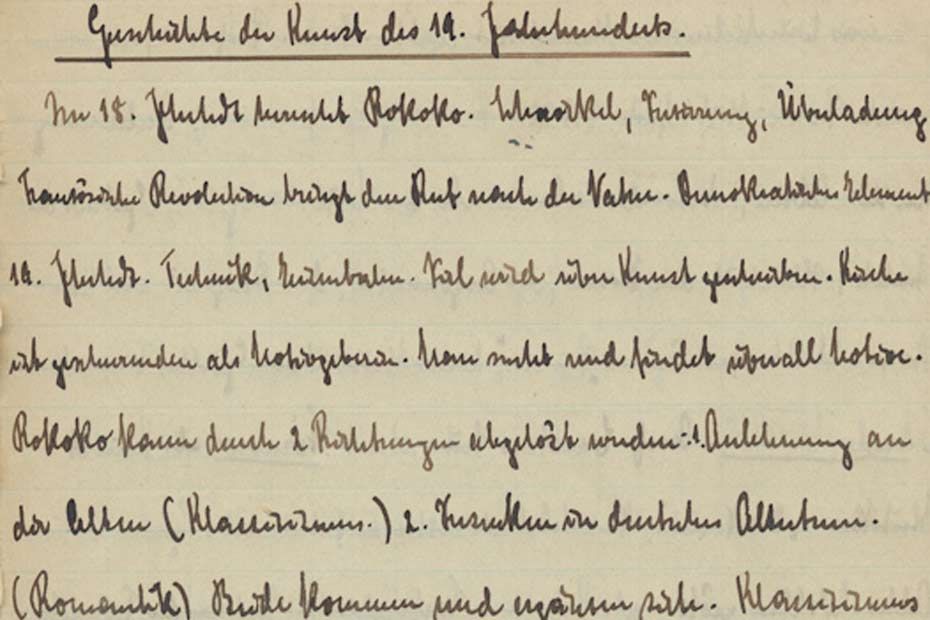 Geschichte der Kunst des 19. Jahrhunderts.
Im 18. Jhrhdt herrscht Rokoko. Schnörkel, Verzierung, Überladung
Französische Revolution bringt den Ruf nach der Natur. Demokratisches Element
19. Jhrhdt. Technik, Eisenbahn. Viel wird über Kunst geschrieben. Kirche
ist geschwunden als Motivgeberin. Man sucht und findet überall Motive.
Rokoko kann durch 2 Richtungen abgelöst werden: 1. Anlehnung an
die Alten (Klassizismus.) 2. Versenken in deutsches Altertum.
(Romantik) Beide kommen und ergänzen sich. Klassizismus